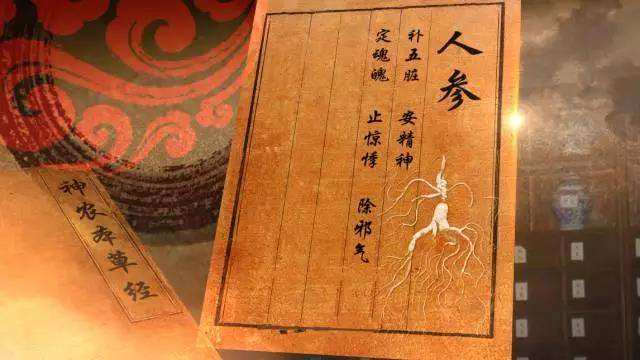 人参
补五脏 安精神
定魂魄 止惊悸 除邪气
神农本草经